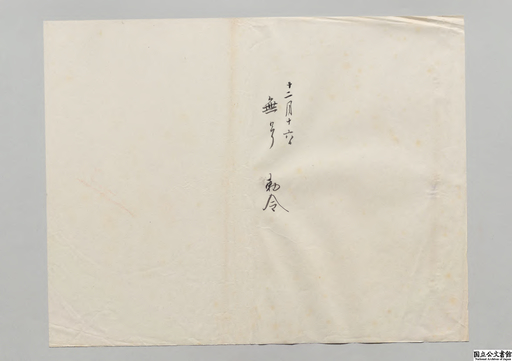 十二月十六日
無号 勅令
国立公文書館
National Archives of Japan